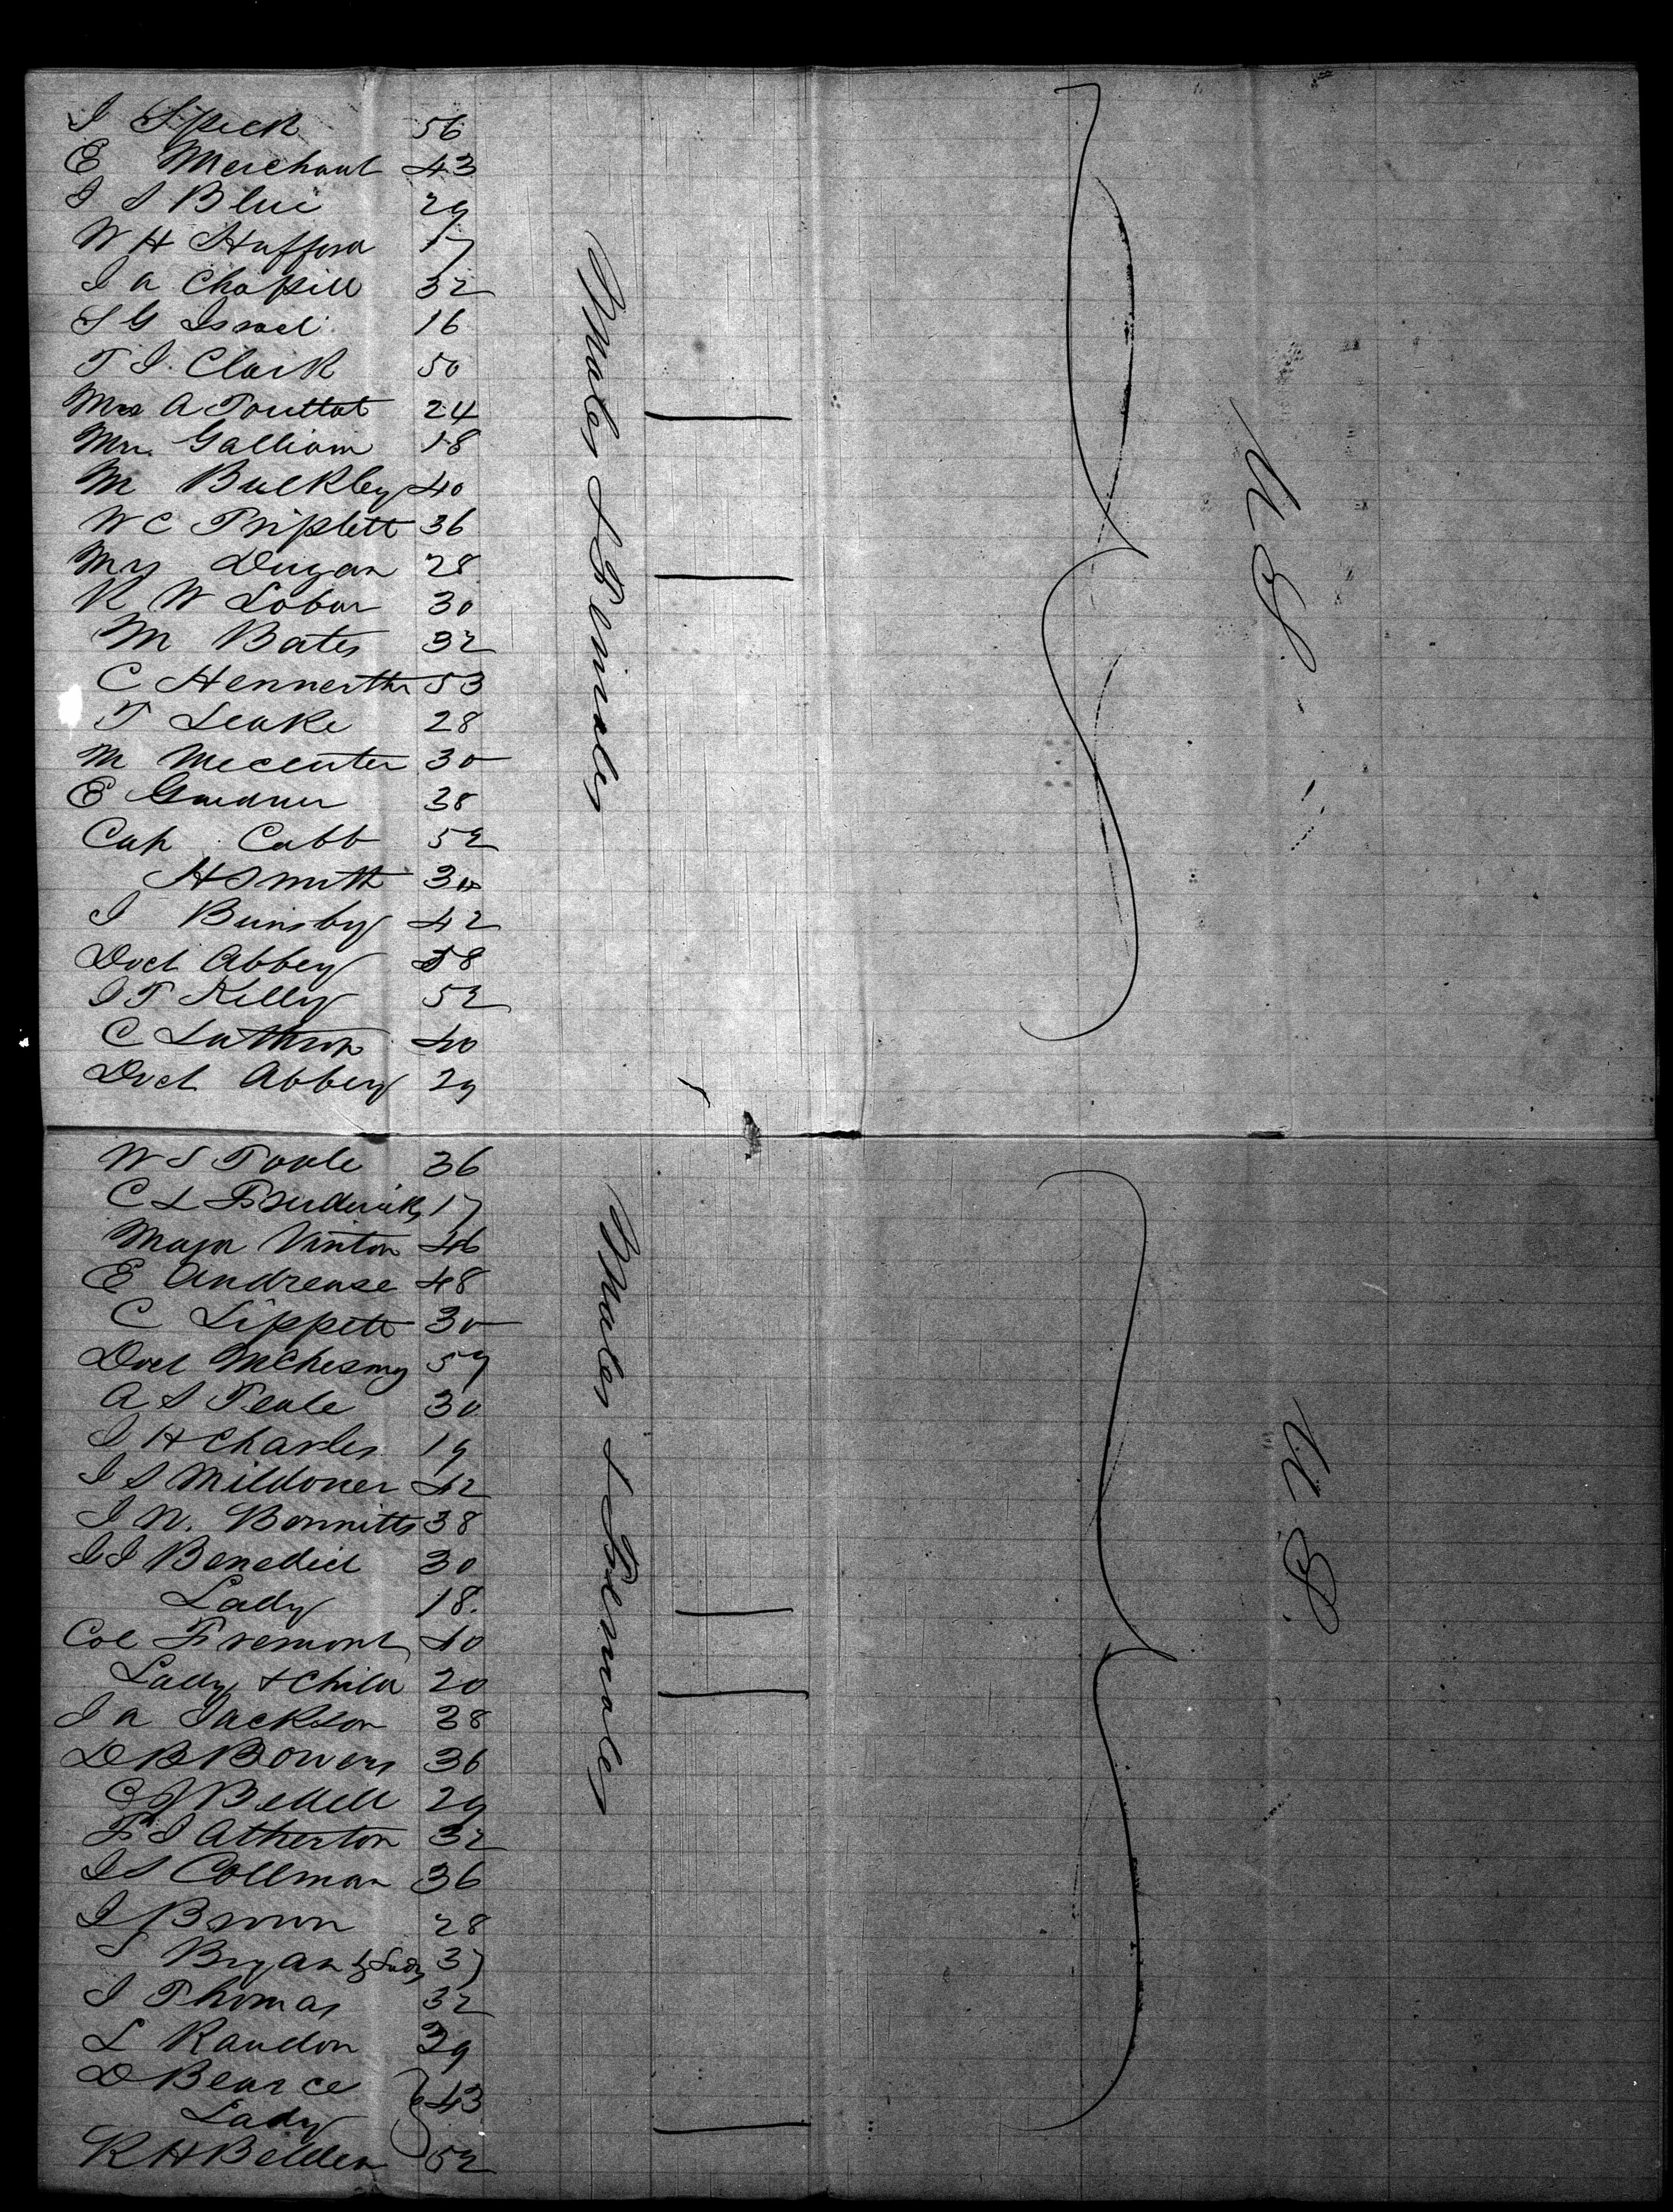 I Speck 56
E Merchant 43
I S Blue 29
W H Hufford 17
I A Chapell 32
S G Israel 16
T I Clark 50
Mrs A Pouttot 24
Mrs. Galliam 18
M Bulkley 40
W C Triplett 36
Mrs Dugan 28
R W Lobar 30
M Bates 32
C Hennerther 53
T Leake 28
M Mecenter 30
E Gardner 38
Cap Cabb 52
H Smith 30
I Bunsby 42
Doct Abbey 58
I T Kelly 52
C Luthrop 40
Doct Abbey 29
Males & Females
U S
W S Toole 36
C L Frederick 17
Major Vinton 46
E Andrease 48
C Lippett 30
Doct McChesny 59
A S Teale 30
I H Charles 19
I S Mildoner 42
I N. Bonnitts 38
I I Benedict 30
Lady 18.
Col Fremont 40
Lady & Child 20
I A Jackson 38
D B Bowers 36
C J Bettell 29
F I Atherton 32
I S Collman 36
I Brown 28
S Bryan & Lady 37
I Thomas 32
L Raudon 39
D Bearce 43
Lady
R H Belden 52
Males & Females
U. S.